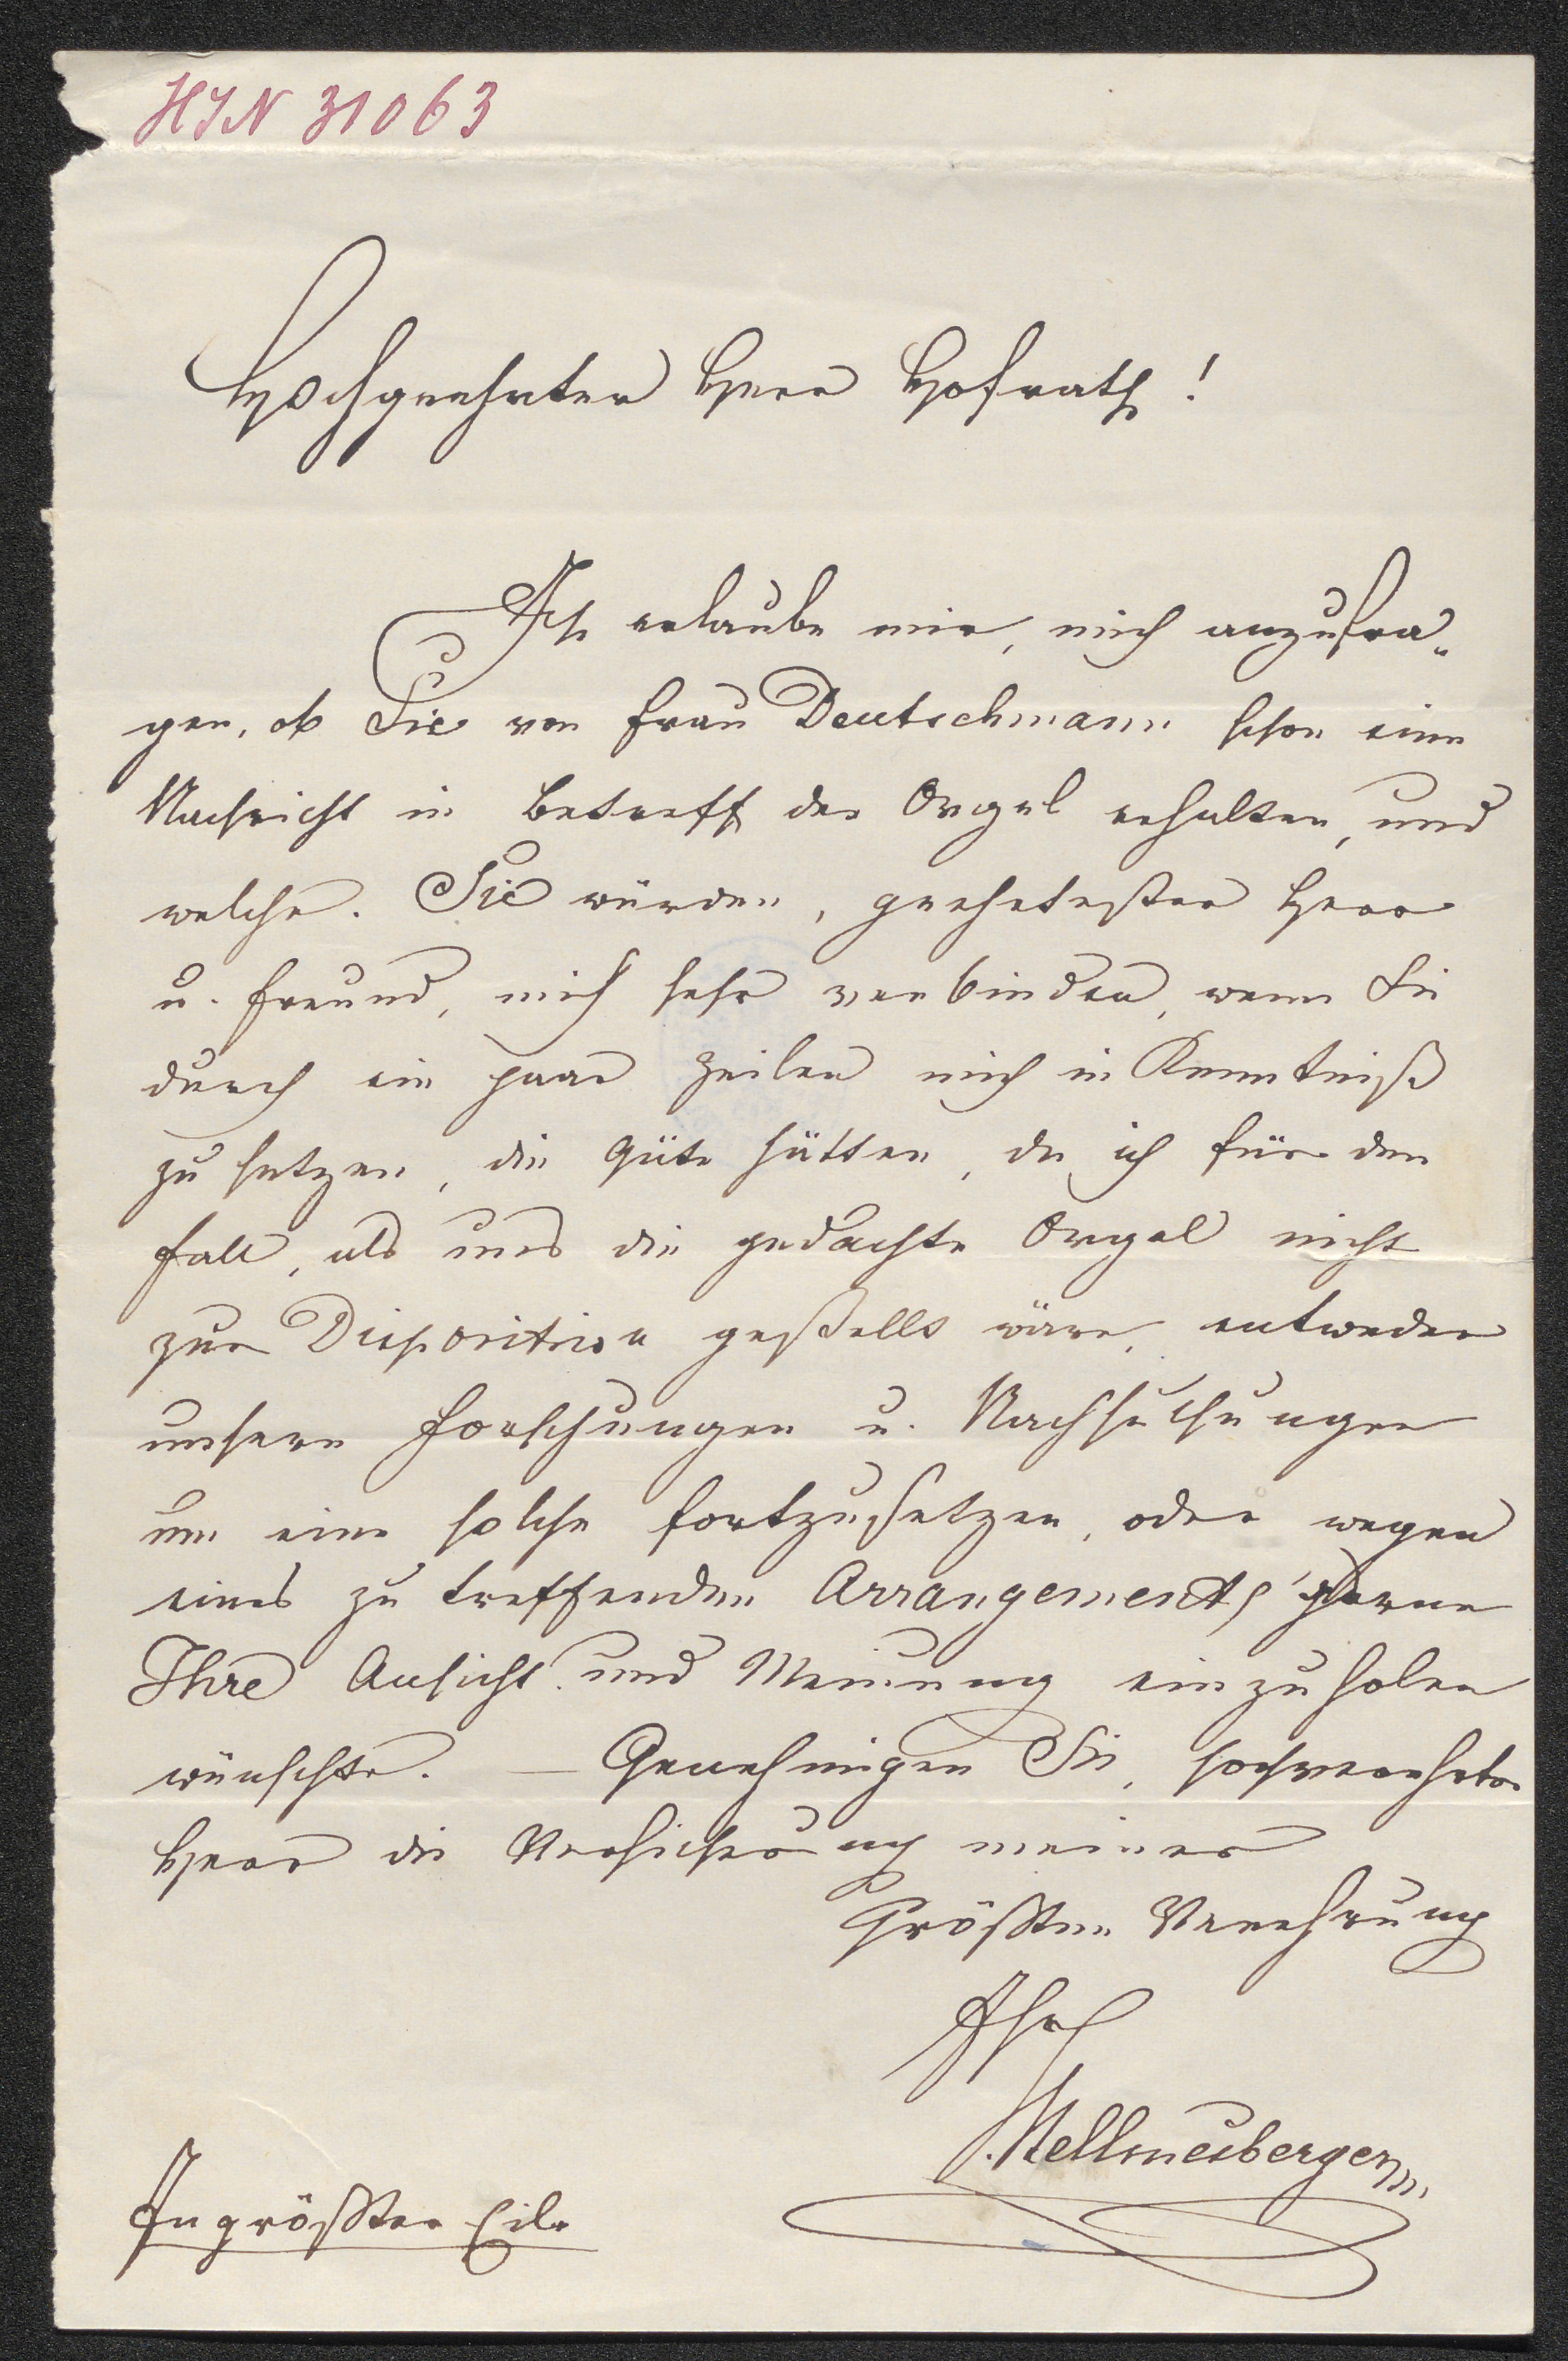 HIN 31063
Hochgeehrter Herr Hofrath!
Ich erlaube mir, mich anzufra„
gen, ob Sie von Frau Deutschmann schon eine
Nachricht in Betreff der Orgel erhalten, und
welche. Sie würden, geehrtester Herr
u. Freund, mich sehr verbinden, wenn Sie
durch ein paar Zeilen mich in Kenntniß
zu setzen, die Güte hätten, da ich für den
Fall, als uns die gedachte Orgel nicht
zur Disposition gestellt wäre, entweder
unsere Forschungen u. Nachsuchungen
um eine solche fortzusetzen, oder wegen
eines zu treffenden Arrangements gerne
Ihre Ansicht und Meinung einzuholen
wünschte. — Genehmigen Sie, hochverehrter
Herr die Versicherung meiner
größten Verehrung
Ihr
Hellmesberger
In größter Eile